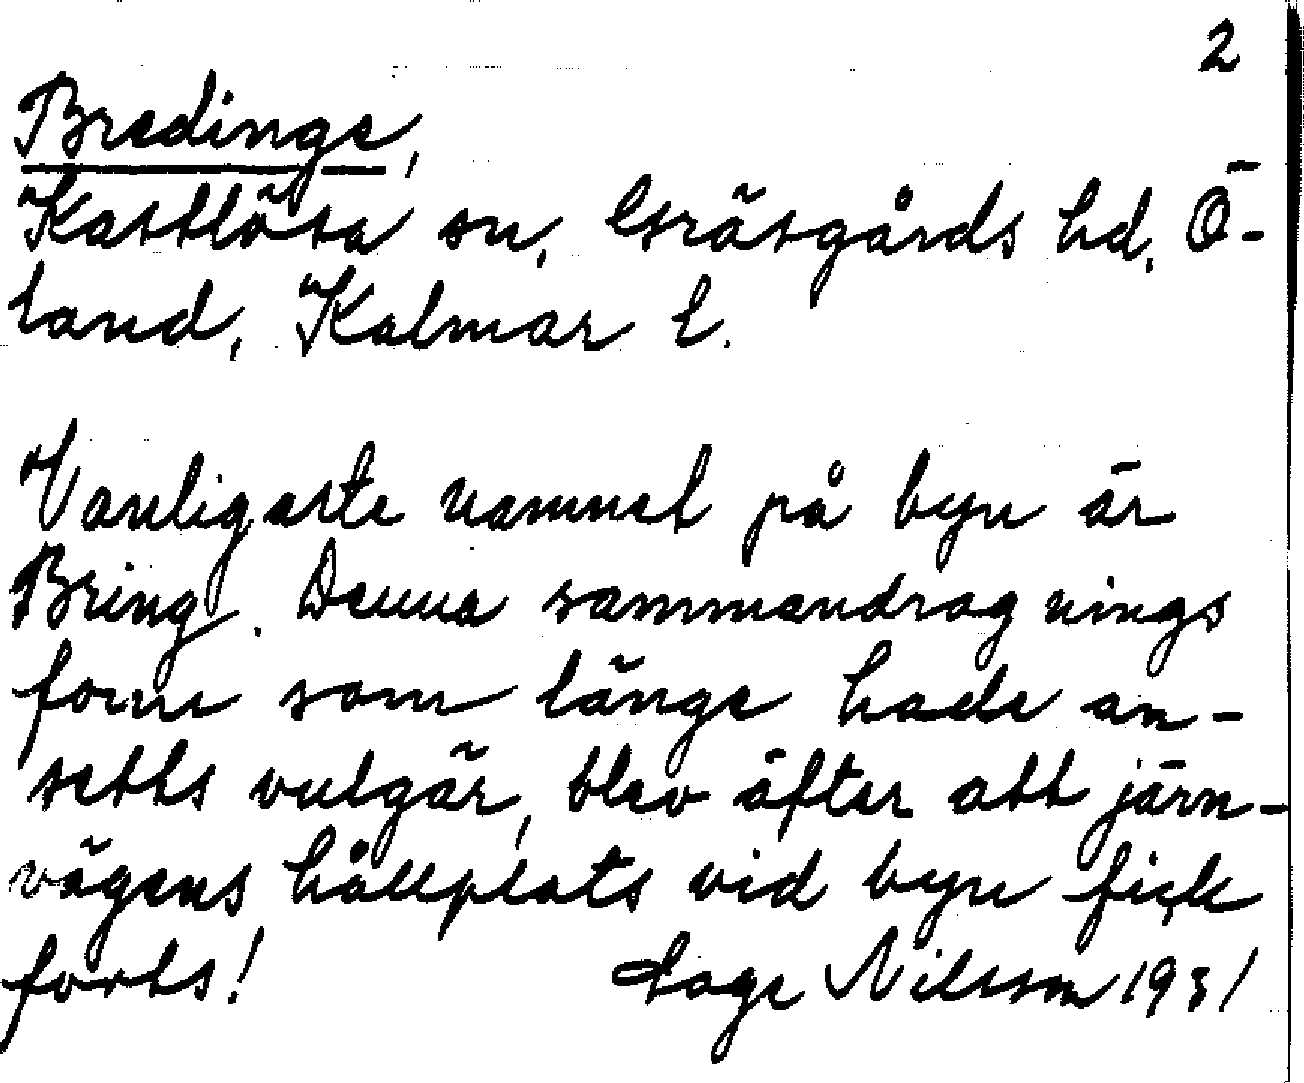 2
Bredinge,
Kastlösa sn, Gräsgårds hd, Ö-
land, Kalmar l.
Vanligaste namnet på byn är
Bring. Denna sammandragnings
form som länge hade an-
setts vulgär, blev äfter att järn-
vägens hållplats vid byn fick
forts! Tage Nilsson 1931